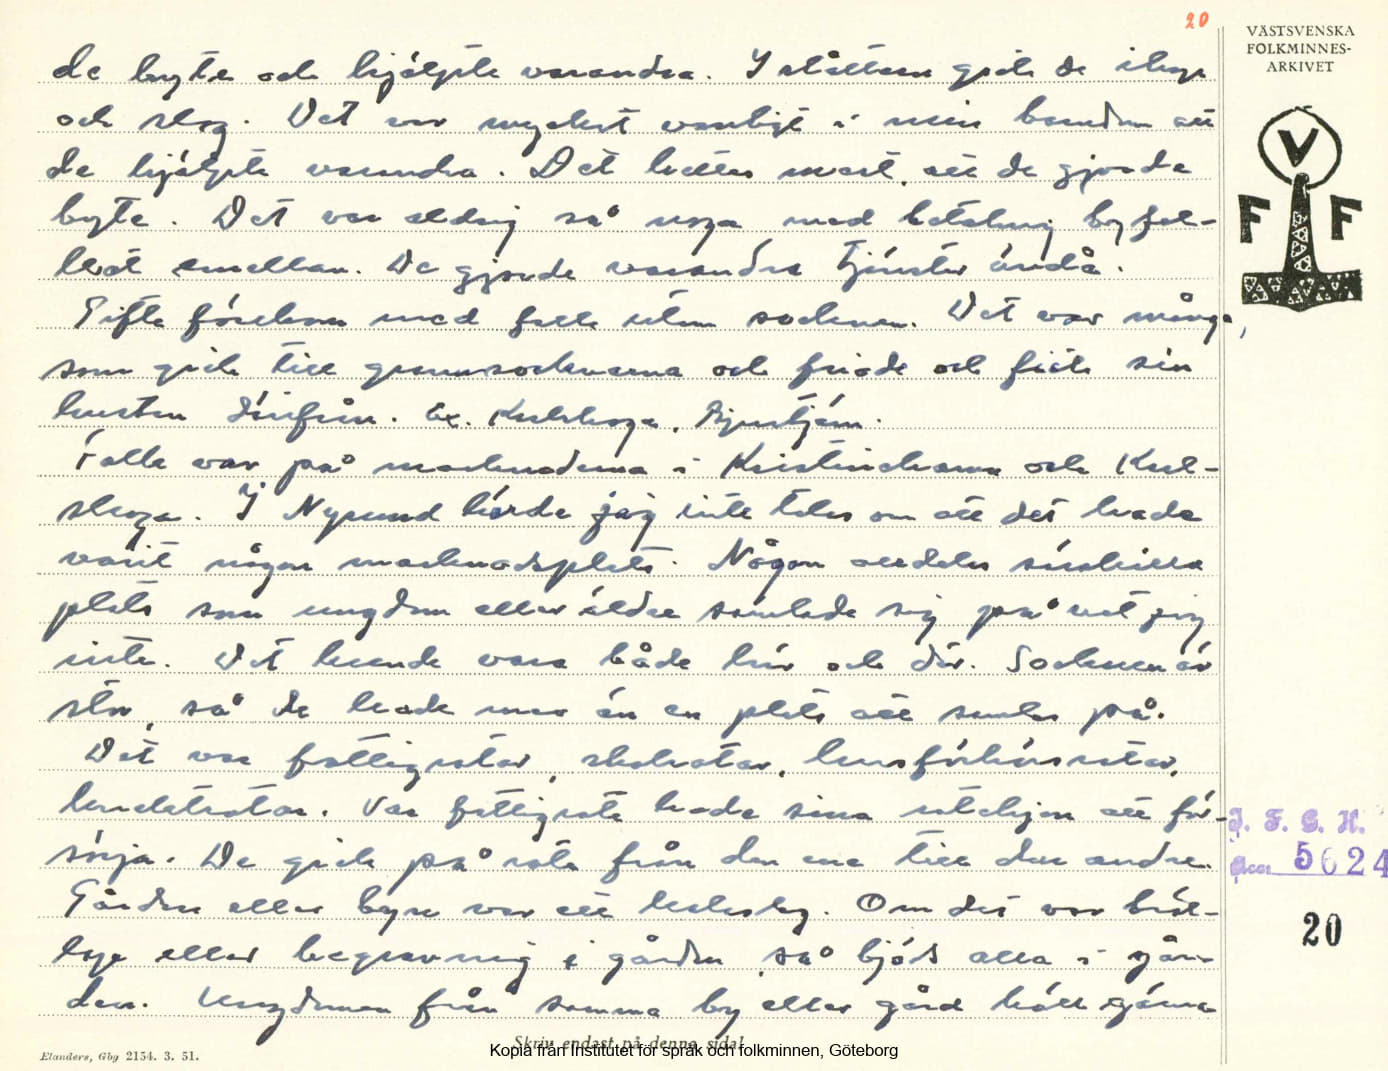 20
VÄSTSVENSKA
FOLKMINNES-
ARKIVET
V
F F
de byte och hjälpte varandra. I slåttern gick de ihop
och slog. Det var mycket vanligt i min barndom att
de hjälpte varandra. Det hettes mest, att de gjorde
byte. Det var aldrig så noga med betalning byfol-
ket emellan. De gjorde varandra tjänster ändå.
Gifte förekom med folk utom socknen. Det var många,
som gick till grannsocknarna och friade och fick sin
hustru därifrån. Ex. Karlskoga, Bjurtjärn.
Folk var på marknaderna i Kristinehamn och Karl-
skoga. I Nysund hörde jag inte talas om att det hade
varit någon marknadsplats. Någon alldeles särskild
plats som ungdom eller äldre samlade sig på vet jag
inte. Det kunde vara både här och där. Socknen är
stor, så de hade mer än en plats att samlas på.
Det var fattigrotar, skolrotar, husförhörsrotar,
Var fattigrote hade sina rotehjon att för-
sörja. De gick på rote från den ena till den andra.
Gården eller byn var ett kalaslag. Om det var bröl-
lop eller begravning i gården så bjöds alla i går-
den. Ungdomen från samma by eller gård höll gärna
J. F. G. H.
Acc. 5624
20
Skriv endast på denna sida!
Elanders, Gbg 2154. 3. 51.
Kopia från Institutet för språk och folkminnen, Göteborg